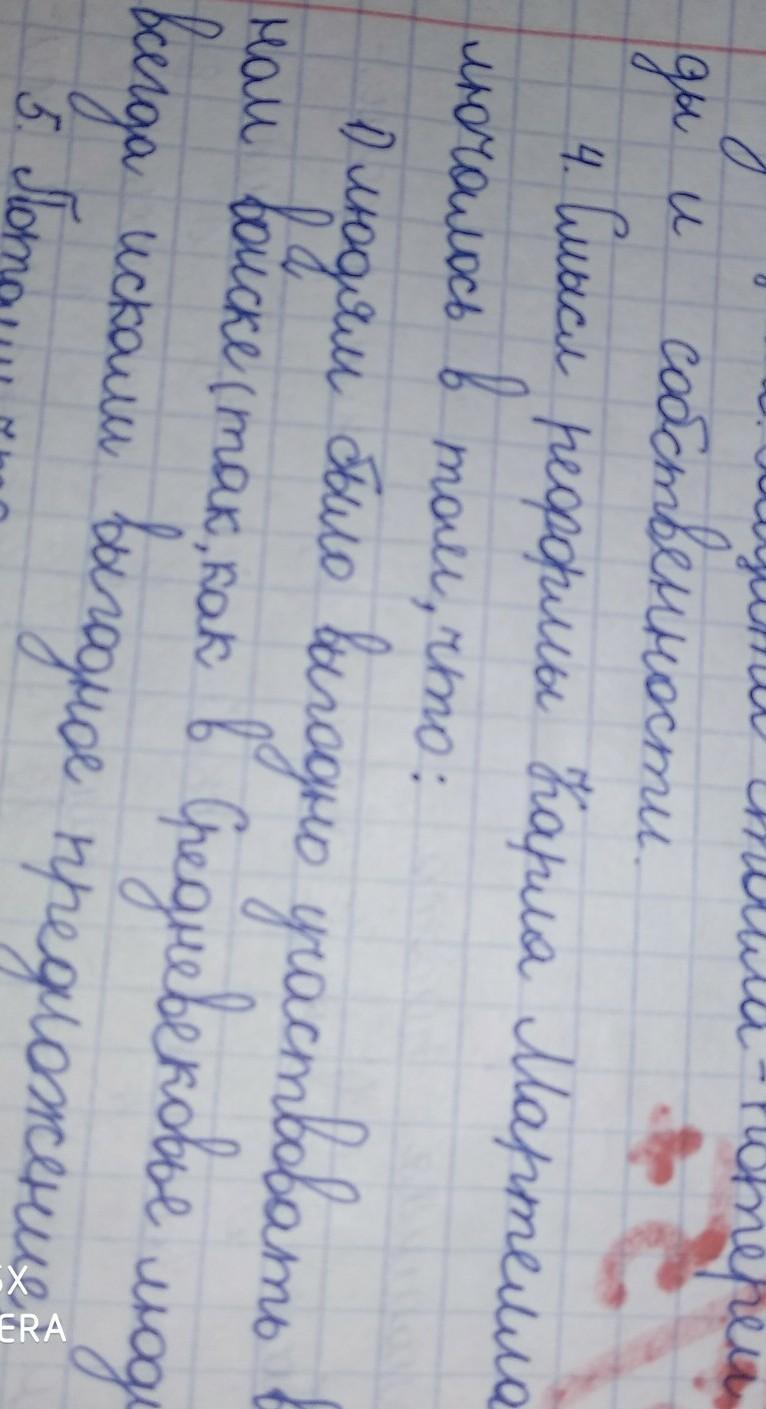 ды и собственности.
4. Смысл реформы Карла Мартелла
лючалось в том, что:
1) людям было выгодно участвовать в
ном войске (так, как в Средневековье люд
всегда искали выгодное предложение
5. Потому что